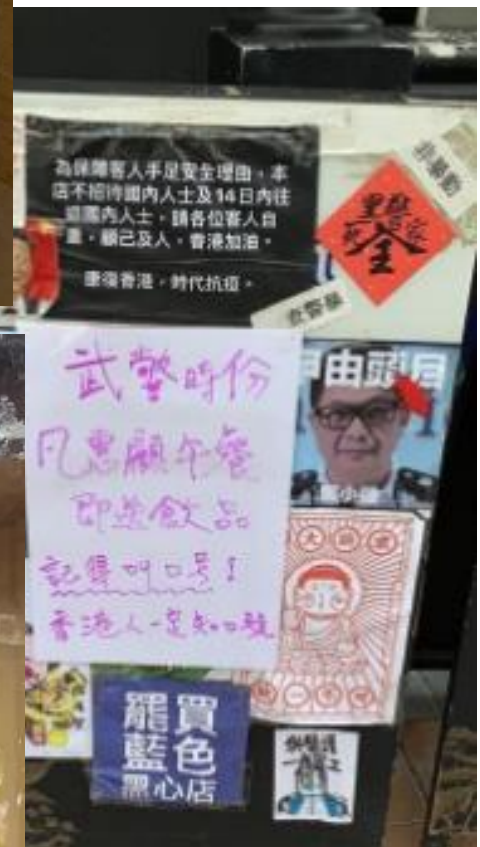 為保障客人手足安全理由，本
店不招待國內人士及14日內往
返國內人士，請各位客人自
重，顧己及人，香港加油。
康復香港，時代抗疫。
非暴動
黑警
死全家
武警時份
凡惠顧午餐
即送飲品
記得叫口号！
香港人一定知口號
甲由頭目
罷買
藍色
黑心店